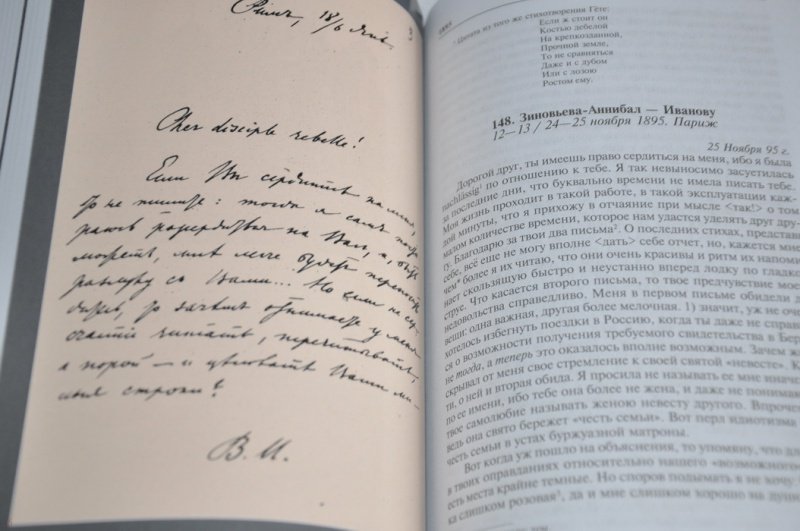 Римъ, 18/6 Янв.
Cher disciple rebelle!
Если Вы сердитесь на меня,
то не пишите: тогда я самъ
разсердюсь на Васъ, и, быть
можетъ, мнѣ легче будетъ переносить
разлуку съ Вами... Но если не сер-
дитесь, то зачѣмъ отнимаете у меня
счастье читать, перечитывать,
а порой — и цѣловать Ваши ми-
лыя строки?
В. И.
Цитата из того же стихотворения Гёте:
Если ж стоит он
Костью дебелой
На крепкозданной,
Прочной земле,
То не сравняться
Даже и с дубом
Или с лозою
Ростом ему.
148. Зиновьева-Аннибал — Иванову
12—13 / 24—25 ноября 1895. Париж
25 Ноября 95 г.
Дорогой друг, ты имеешь право сердиться на меня, ибо я была
nachlässig¹ по отношению к тебе. Я так невыносимо засуетилась
за последние дни, что буквально времени не имела писать тебе.
Моя жизнь проходит в такой работе, в такой эксплуатации каж-
дой минуты, что я прихожу в отчаяние при мысле <так!> о том
малом количестве времени, которое нам удастся уделять друг дру-
гу. Благодарю за твои два письма². О последних стихах, представь
себе, всё еще не могу вполне <дать> себе отчет, но, кажется мне,
чем" более я их читаю, что они очень красивы и ритм их напоми-
нает скользящую быстро и неустанно вперед лодку по гладкой
струе. Что касается второго письма, то твое предчувствие моего
недовольства справедливо. Меня в первом письме обидели две
вещи: одна важная, другая более мелочная. 1) значит, уж не очень
хотелось избегнуть поездки в Россию, когда ты даже не справил-
ся о возможности получения требуемого свидетельства в Бер
не тогда, а теперь это оказалось вполне возможным. Зачем же
скрывал от меня свое стремление к своей святой «невесте».
ти, о ней и вторая обида. Я просила не называть ее мне иначе
по ее имени, ибо тебе она более не жена, и даже не понимаю
твое самолюбие называть женою невесту другого. Впрочем
ведь она свято бережет «честь семьи». Вот перл идиотизма
честь семьи в устах буржуазной матроны.
Вот когда уж пошло на объяснения, то упомяну, что для
в твоих оправданиях относительно нашего «возможного»
есть места крайне темные. Но споров подымать я не хочу.
ка слишком розовая³, да и мне слишком хорошо на душе